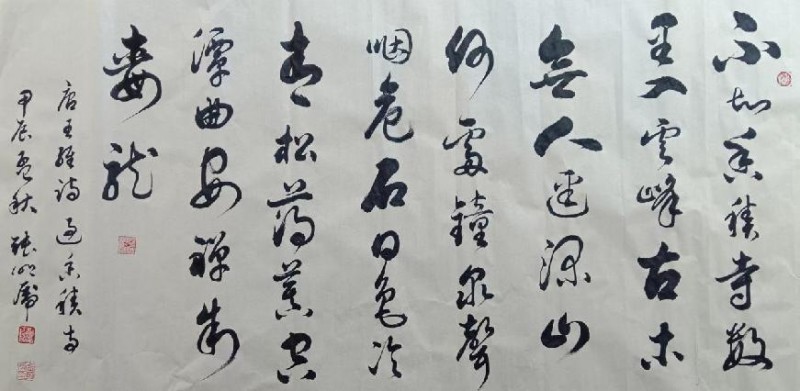 不知香積寺數
里入雲峰古木
無人逕深山
何處鐘泉聲
咽危石日色冷
青松薄暮空
潭曲安禪制
毒龍
唐王維詩過香積寺
甲辰孟秋張